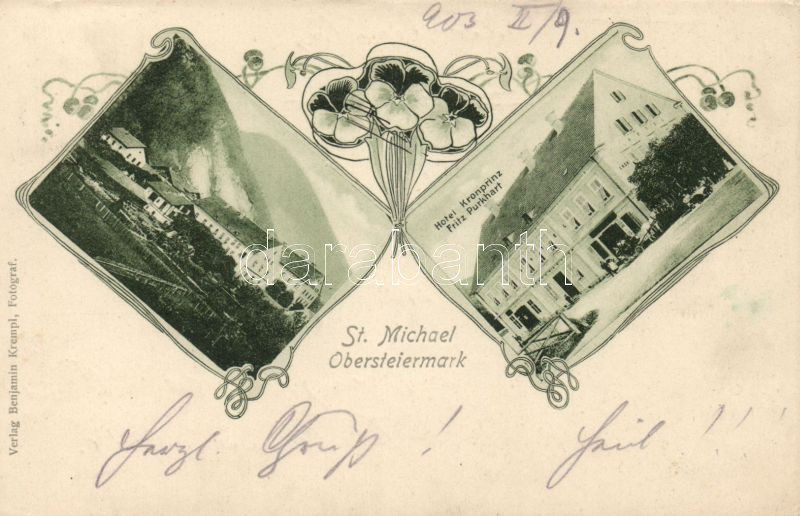 903 II/9.
Hotel Kronprinz
Fritz Purkhart
darabanth
St. Michael
Obersteiermark
Verlag Benjamin Krempl, Fotograf.
Herzl. Gruß! Heil!!!